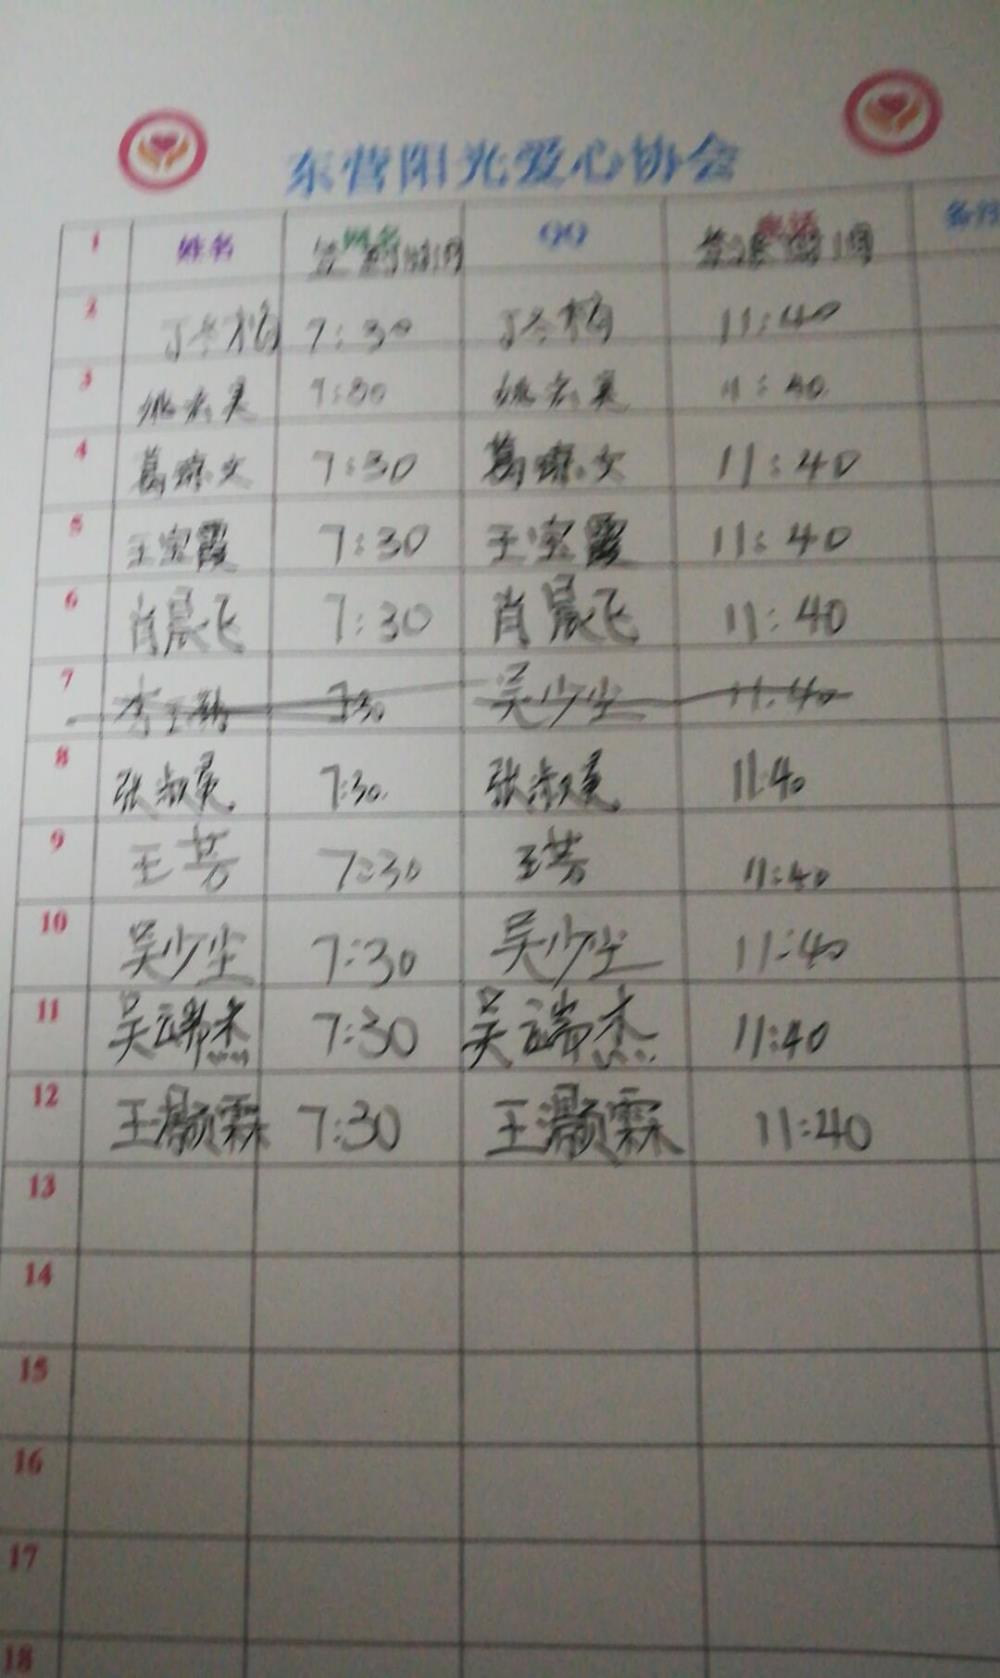 东营阳光爱心协会
1 姓名 签到时间 QQ 签退时间 备注
2 丁冬梅 7:30 丁冬梅 11:40
3 姚宏昊 7:30 姚宏昊 11:40
4 葛琼文 7:30 葛琼文 11:40
5 王宝霞 7:30 王宝霞 11:40
6 肖晨飞 7:30 肖晨飞 11:40
7 李玉 7:30 吴少尘 11:40
8 张淑 7:30 张淑 11:40
9 王芳 7:30 王芳 11:40
10 吴少尘 7:30 吴少尘 11:40
11 吴端杰 7:30 吴端杰 11:40
12 王灏霖 7:30 王灏霖 11:40
13
14
15
16
17
18